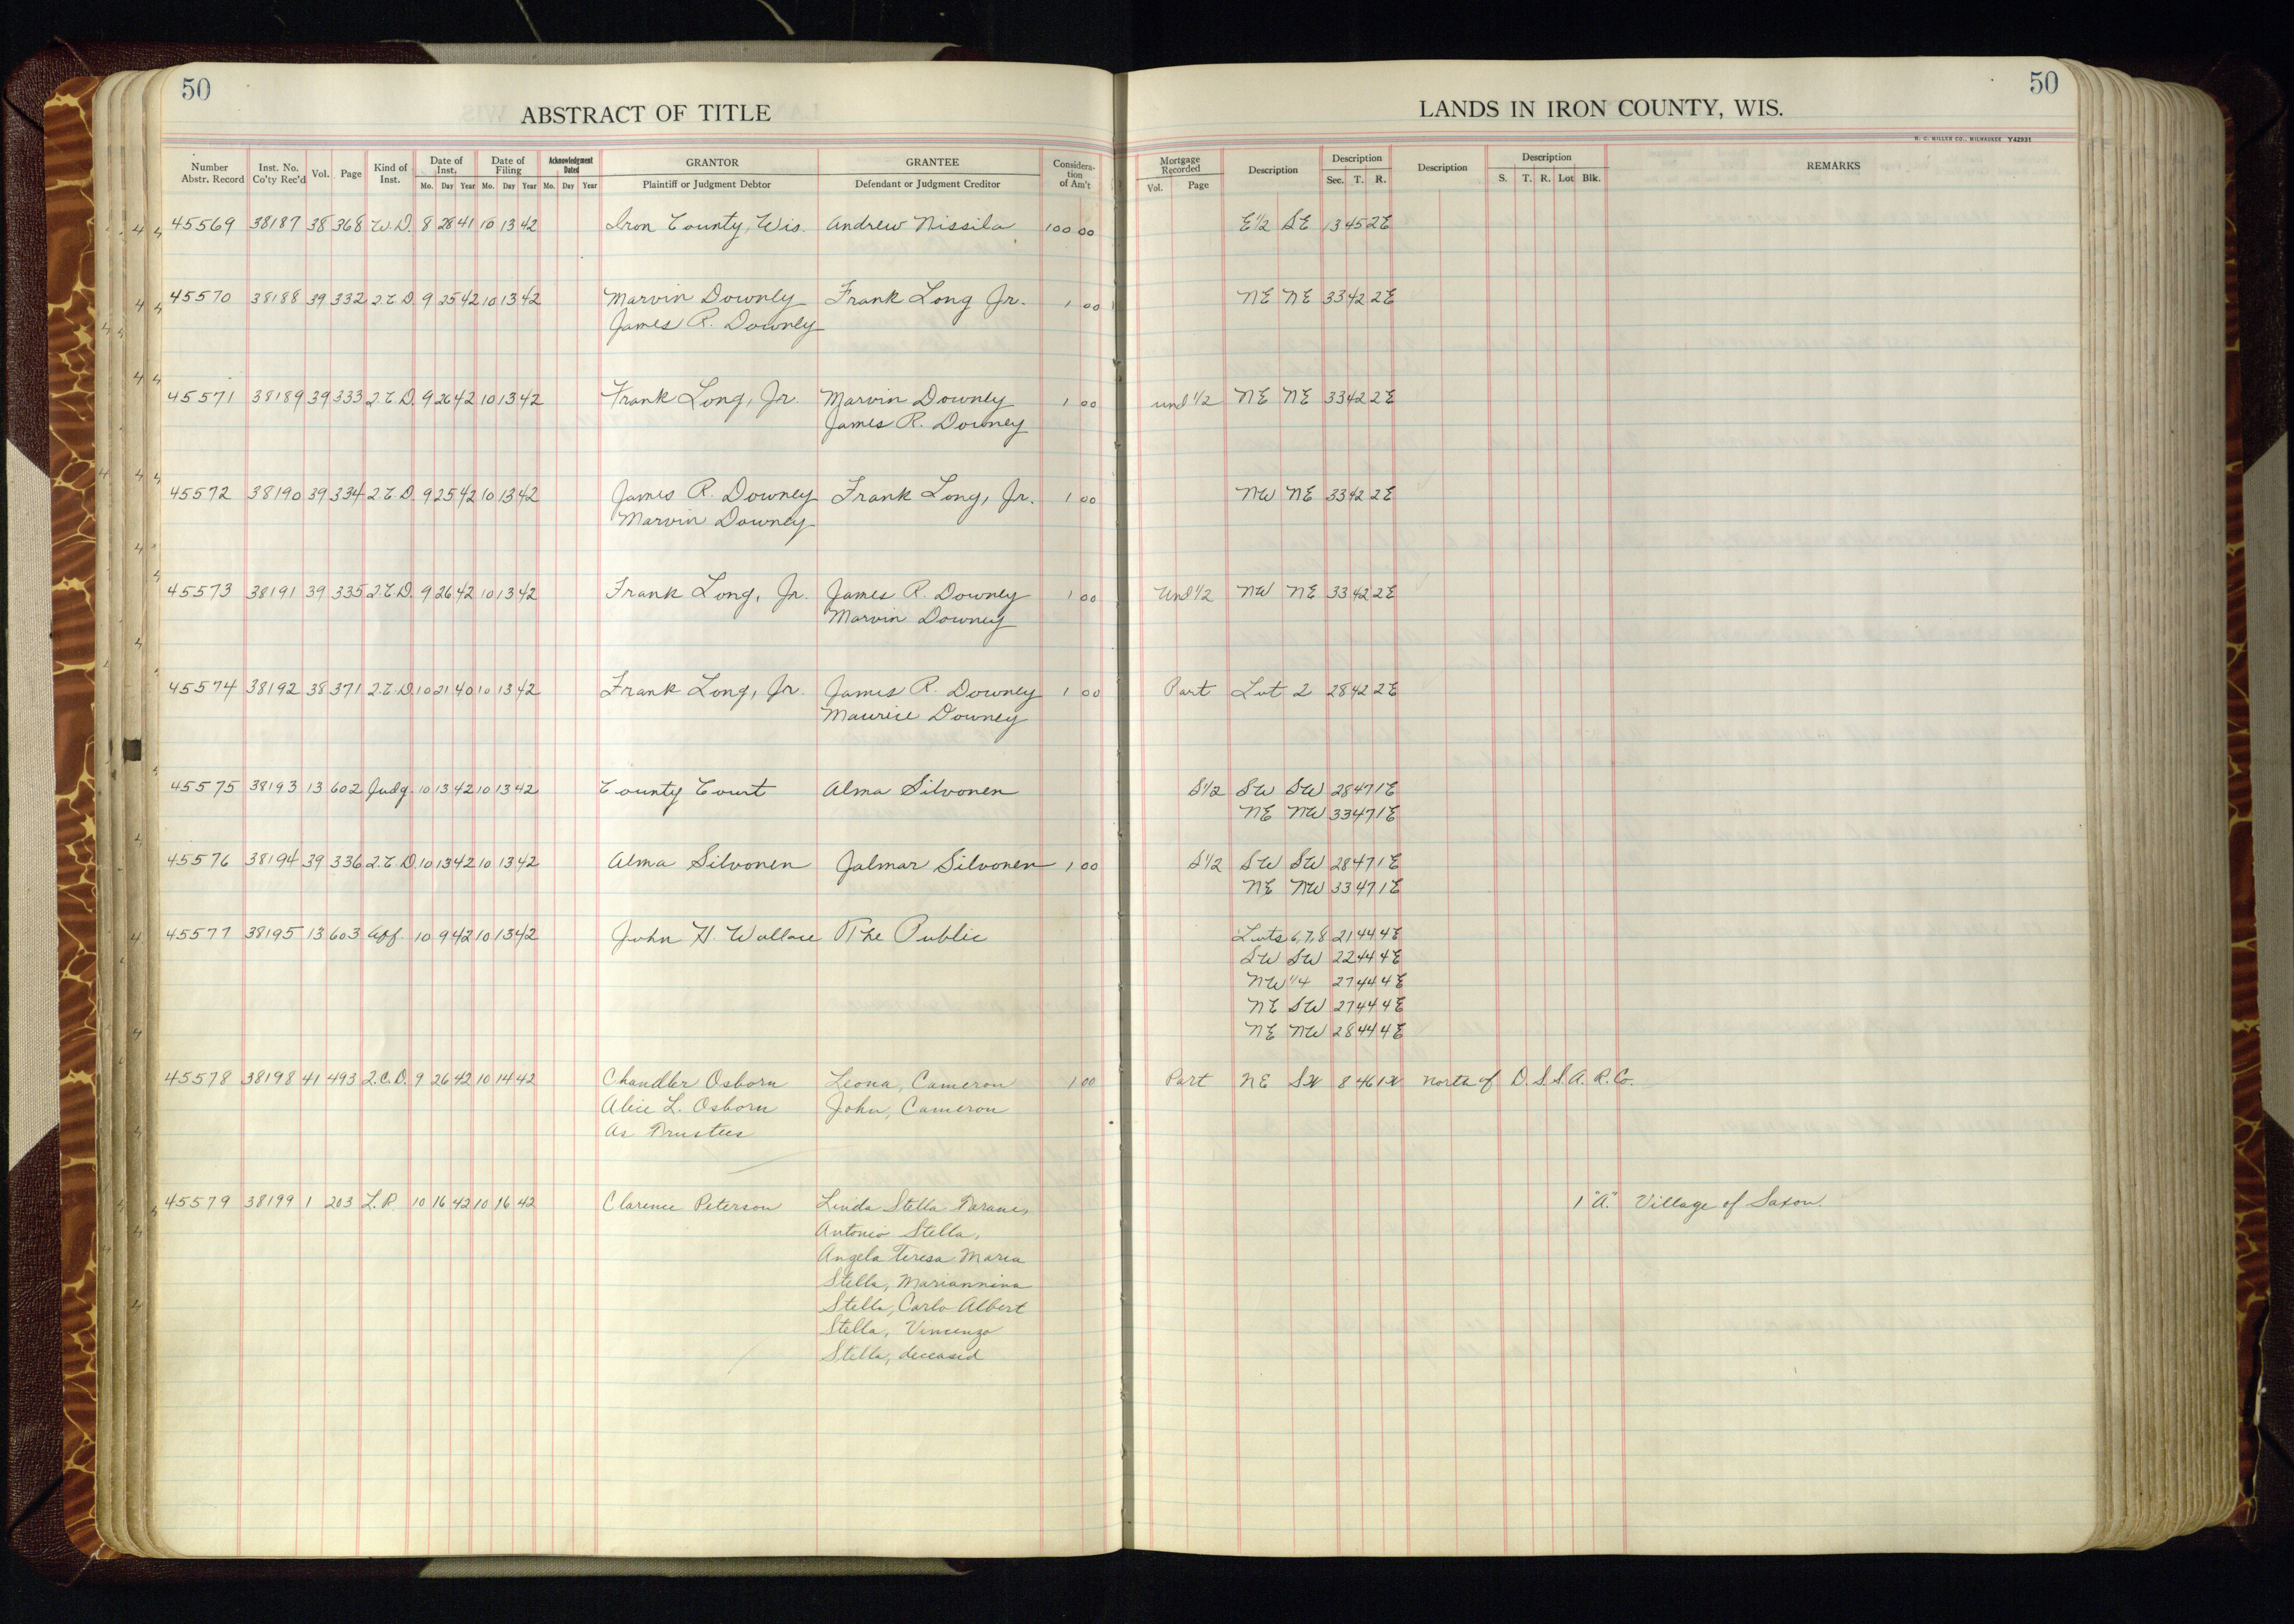 50
ABSTRACT OF TITLE
Number Abstr. Record Inst. No. Co'ty Rec'd Vol. Page Kind of Inst. Date of Inst. Mo. Day Year Date of Filing Mo. Day Year Acknowledgment Dated Mo. Day Year GRANTOR Plaintiff or Judgment Debtor GRANTEE Defendant or Judgment Creditor Consideration of Am't
50
LANDS IN IRON COUNTY, WIS.
H. C. MILLER CO., MILWAUKEE Y42931
Mortgage Recorded Vol. Page Description Description Sec. T. R. Description Description S. T. R. Lot Blk. REMARKS
45569 38187 38 368 W.D. 8 28 41 10 13 42 Iron County, Wis. Andrew Nissila 100 00 E½ SE 13 45 2E
45570 38188 39 332 2.C.D. 9 25 42 10 13 42 Marvin Downey Frank Long Jr. 1 00 NE NE 33 42 2E
James R. Downey
45571 38189 39 333 2.C.D. 9 26 42 10 13 42 Frank Long, Jr. Marvin Downey 1 00 und ½ NE NE 33 42 2E
James R. Downey
45572 38190 39 334 2.C.D. 9 25 42 10 13 42 James R. Downey Frank Long, Jr. 1 00 NW NE 33 42 2E
Marvin Downey
45573 38191 39 335 2.C.D. 9 26 42 10 13 42 Frank Long, Jr. James R. Downey 1 00 Und ½ NW NE 33 42 2E
Marvin Downey
45574 38192 38 371 2.C.D. 10 21 40 10 13 42 Frank Long, Jr. James R. Downey 1 00 Part Lot 2 28 42 2E
Maurice Downey
45575 38193 13 602 Judg. 10 13 42 10 13 42 County Court Alma Silvonen S½ SW SW 28 47 1E
NE NW 33 47 1E
45576 38194 39 336 2.C.D. 10 13 42 10 13 42 Alma Silvonen Jalmar Silvonen 1 00 S½ SW SW 28 47 1E
NE NW 33 47 1E
45577 38195 13 603 Aff. 10 9 42 10 13 42 John H. Wallace The Public Lots 6,7,8 21 44 4E
SW SW 22 44 4E
NW ¼ 27 44 4E
NE SW 27 44 4E
NE NW 28 44 4E
45578 38198 41 493 2.C.D. 9 26 42 10 14 42 Chandler Osborn Leona, Cameron 1 00 Part NE SW 8 46 1W North of D.S.S.A.R.Co.
Alice L. Osborn John, Cameron
As Trustees
45579 38199 1 203 L.P. 10 16 42 10 16 42 Clarence Peterson Linda Stella Parane, 1 "A." Village of Saxon.
Antonio Stella,
Angela Teresa Maria
Stella, Mariannina
Stella, Carlo Albert
Stella, Vincenzo
Stella, deceased